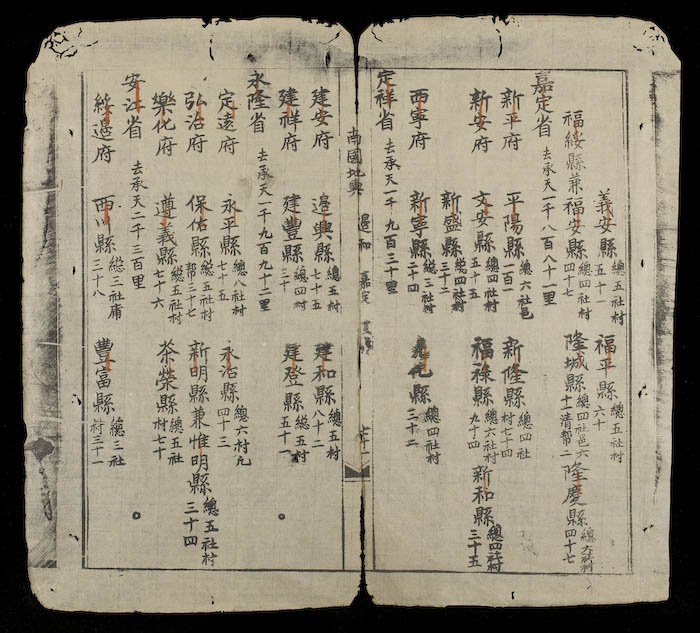 義安縣 總五社村 五十一 福平縣 總五社村 六十
福綏縣兼福安縣 總四社村 四十七 隆城縣 總四社邑六十二清幫二 隆慶縣 四十七
嘉定省 去承天一千八百八十一里
新平府 平陽縣 總六社邑 一百一 新隆縣 總四社村七十四
新安府 文安縣 總四社村 五十五 福祿縣 總六社村 九十四 新和縣 總四社村 三十五
新盛縣 總四社村 三十二
西寧府 新寧縣 總三社村 二十四 總四社村 三十二
定祥省 去承天一千九百三十里
南國地輿 邊和 嘉定 七十一
建安府 邊興縣 總五村 七十五 建和縣 總五村 八十二
建祥府 建豐縣 總四村 三十 建登縣 總五村 五十一
永隆省 去承天一千九百九十二里
定遠府 永平縣 總八社村 七十五 永治縣 總六村 四十三
弘治府 保佑縣 總五社村幫三十七 新明縣兼惟明縣 總五社村 三十四
樂化府 遵義縣 總五社村 七十六 茶榮縣 總五社村七十
安江省 去承天二千三百里
綏邊府 西川縣 總三社庸 三十八 豐富縣 總三社村三十一